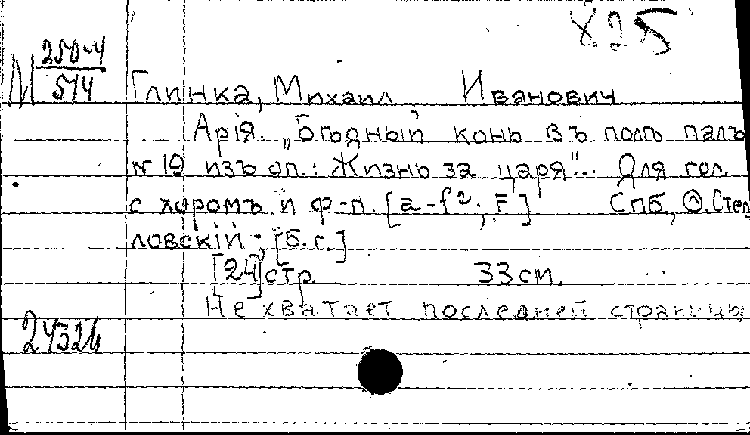 х.25
М 250-4
574
Глинка, Михаил Иванович
Арiя. „Бѣдный конь въ полѣ палъ
№ 19 изъ оп.: Жизнь за царя". Для гол.
с хоромъ и ф-п. [a-f²; F] Спб., Ѳ. Стел
ловскiй, [б.г.]
[24] стр. 33 см.
Не хватает последней страницы